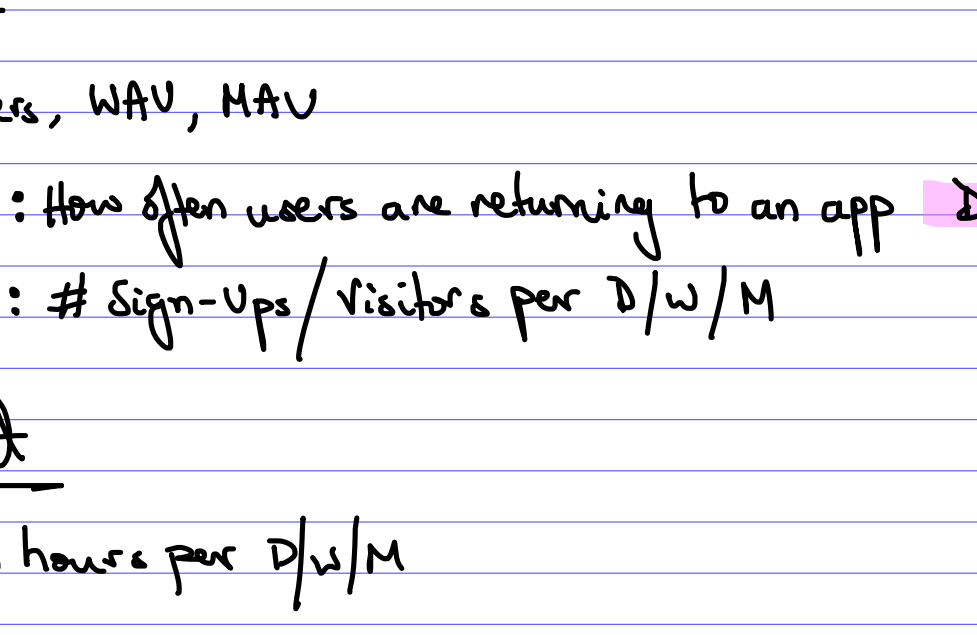 ers, WAU, MAU
: How often users are returning to an app D
: # Sign-Ups / Visitors per D/W/M
t
hours per D/W/M